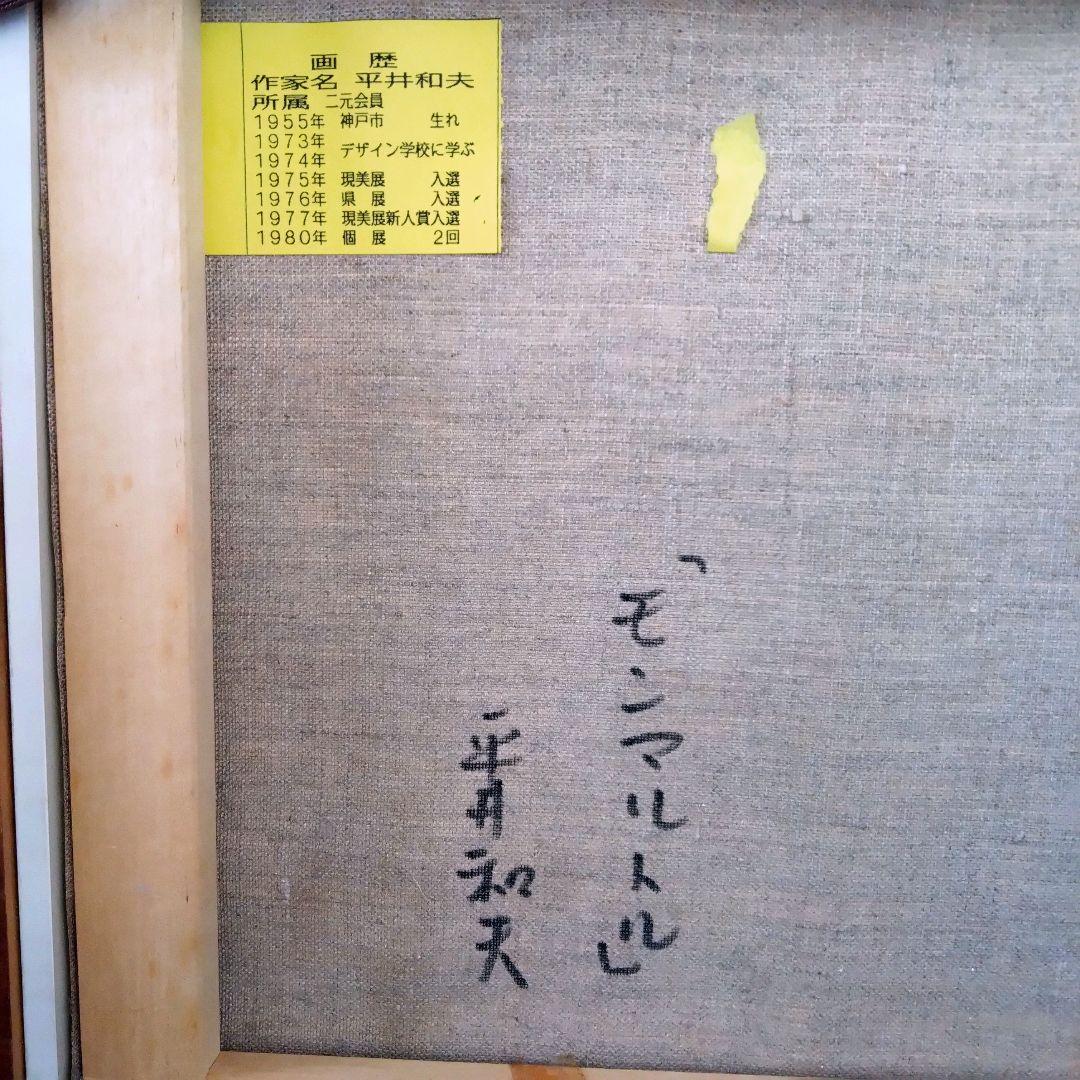 画歴
作家名 平井和夫
所属 二元会員
1955年 神戸市 生れ
1973年
1974年 デザイン学校に学ぶ
1975年 現美展 入選
1976年 県展 入選
1977年 現美展新人賞入選
1980年 個展 2回
「モンマルトル」
平井和夫